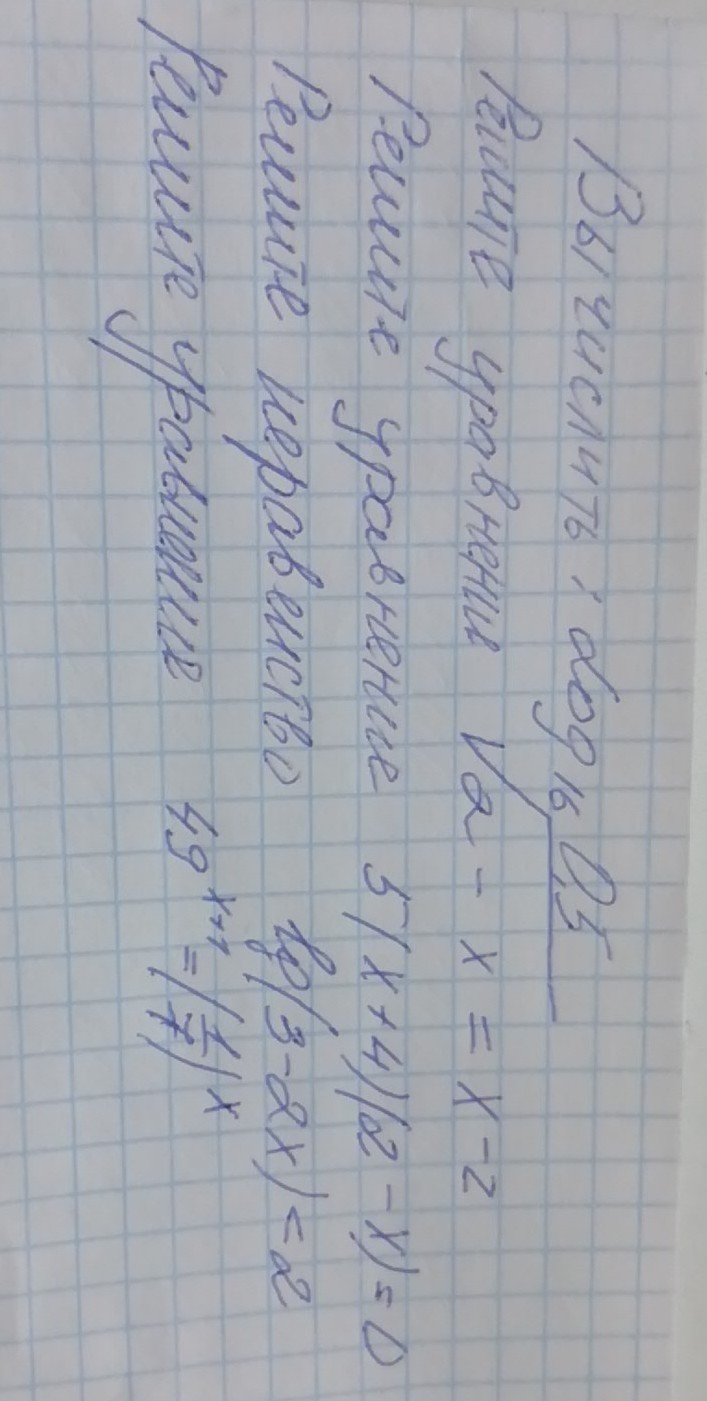 Вычислить: log₁₆ 0,5
Решите уравнение √2 - x = x - 2
Решите уравнение 5(x+4)(2-x)=0
Решите неравенство lg(3-2x)<2
Решите уравнение 49^(x+1) = (1/7)^x